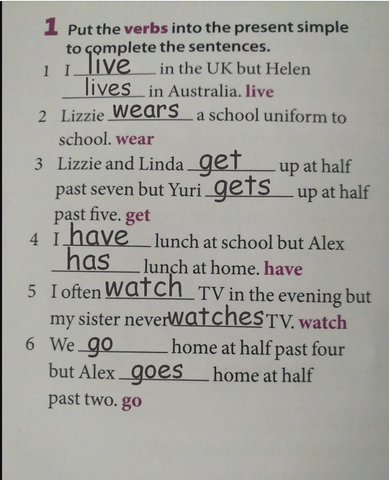 1 Put the verbs into the present simple
to complete the sentences.
1 I live in the UK but Helen
lives in Australia. live
2 Lizzie wears a school uniform to
school. wear
3 Lizzie and Linda get up at half
past seven but Yuri gets up at half
past five. get
4 I have lunch at school but Alex
has lunch at home. have
5 I often watch TV in the evening but
my sister never watches TV. watch
6 We go home at half past four
but Alex goes home at half
past two. go